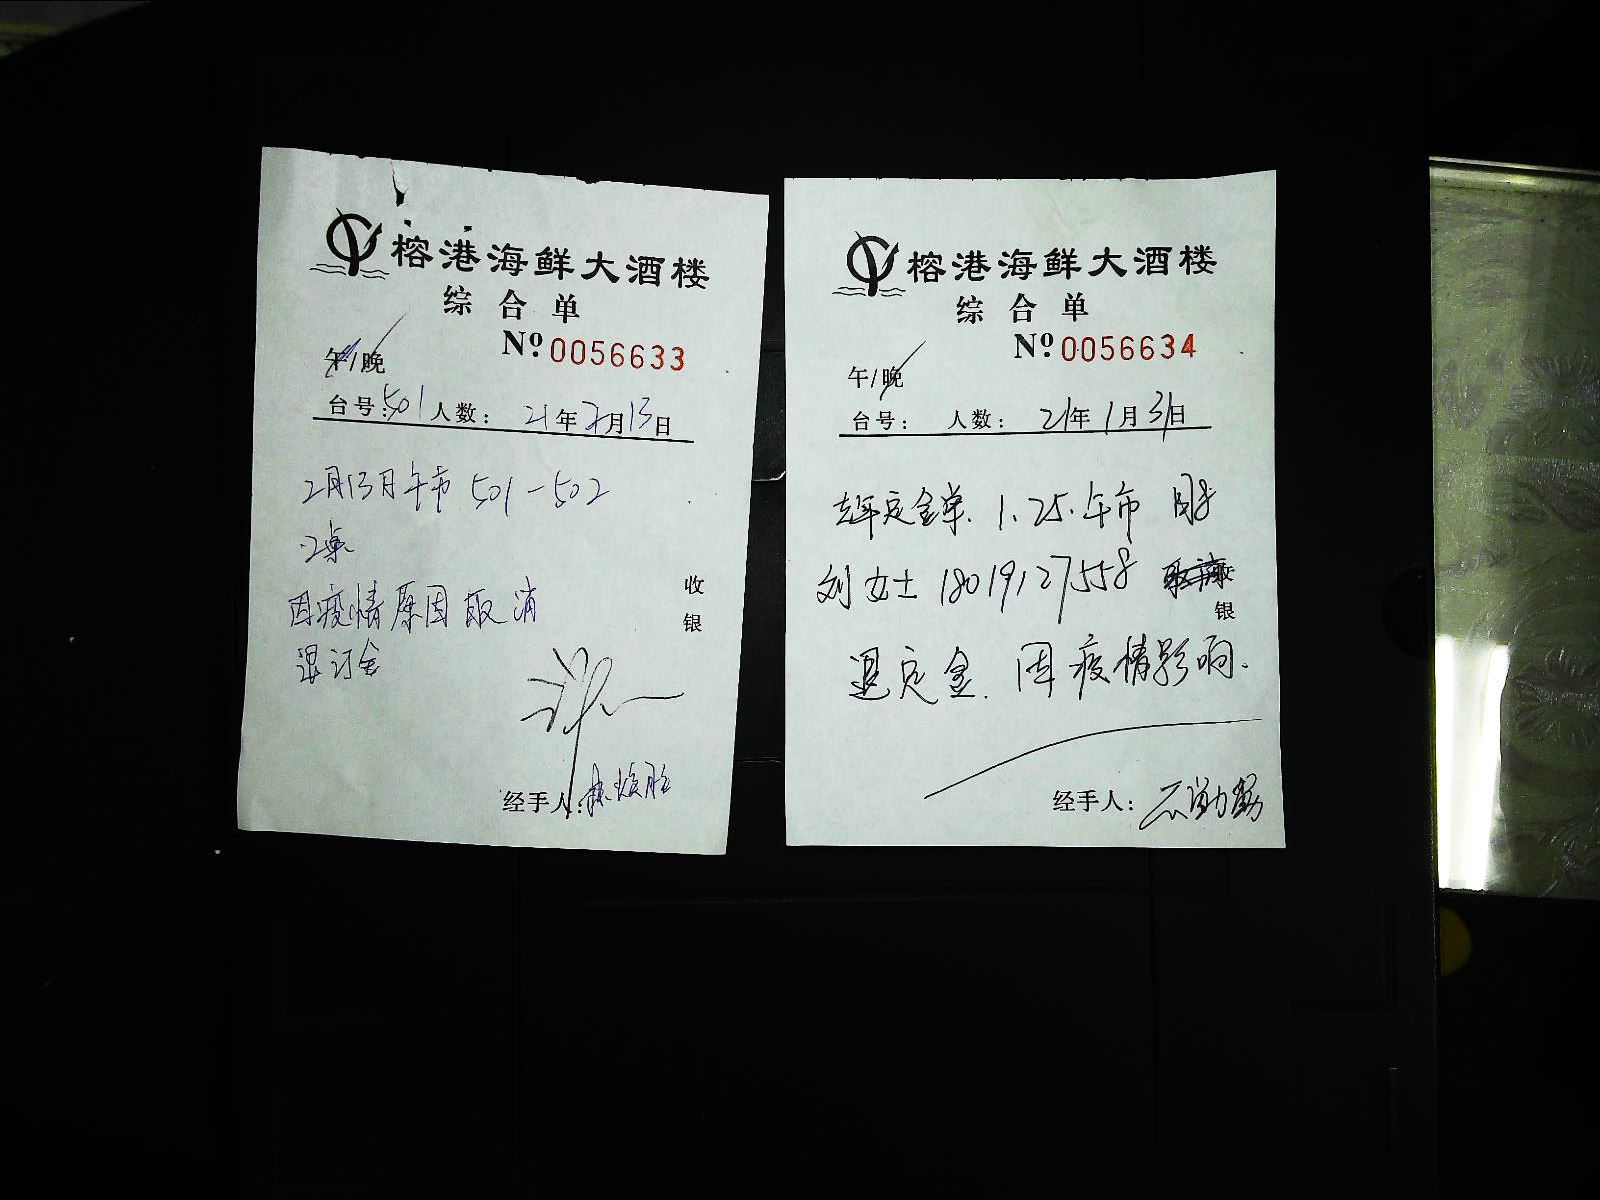 榕港海鲜大酒楼
综合单
Nº 0056633
午/晚
台号:501 人数: 21年2月13日
2月13日午市 501-502
2桌
因疫情原因取消
退订金
收银
经手人:
榕港海鲜大酒楼
综合单
Nº 0056634
午/晚
台号: 人数: 21年1月31日
去年定金单. 1.25.午市
刘女士 18019127558
退定金. 因疫情影响.
银
经手人: